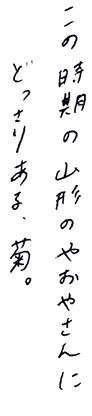 この時期の山形のやおやさんに
どっさりある、菊。